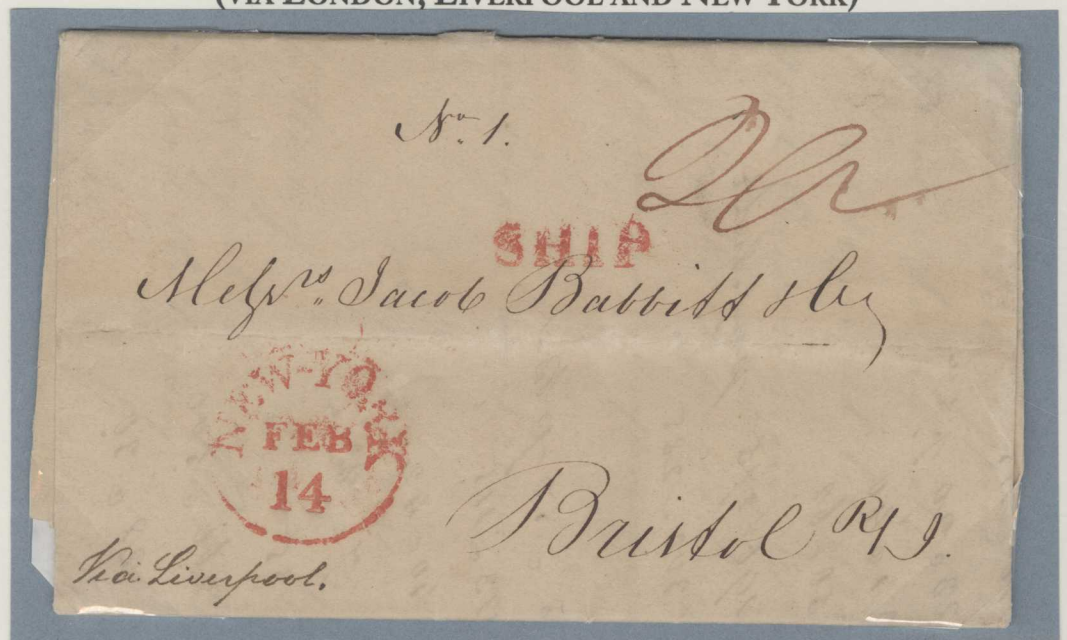 (VIA LONDON, LIVERPOOL AND NEW YORK)
No. 1.
SHIP
Messrs. Jacob Babbitt & Co
NEW-YORK
FEB
14
Bristol R.I.
Via Liverpool.